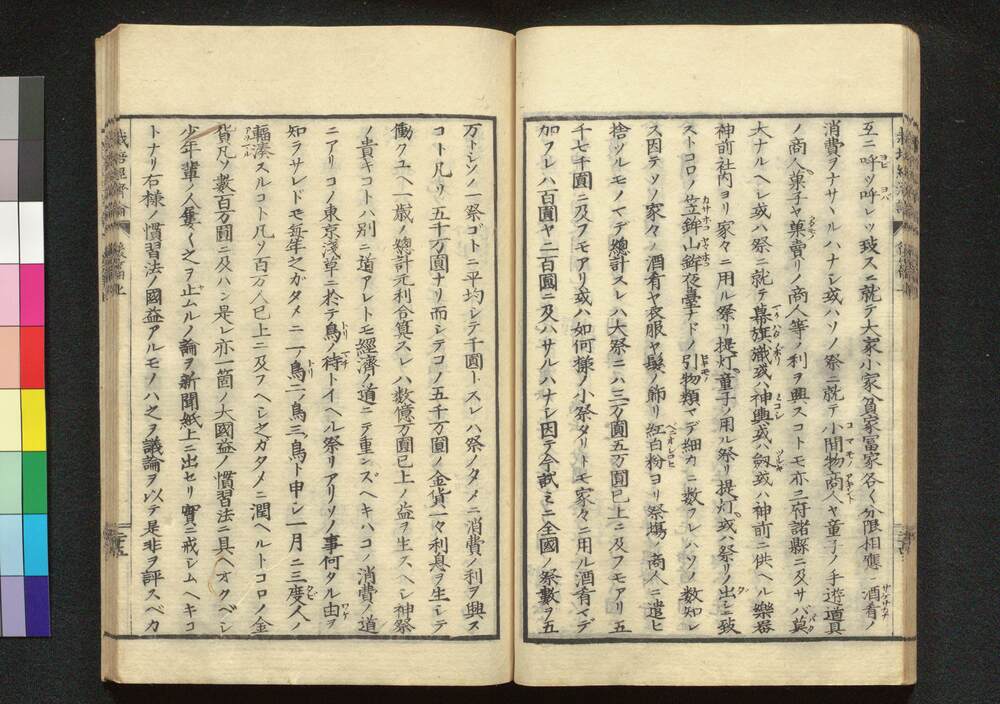 互ニ呼ツ呼レツ致スニ就テ大家小家貧家冨家各〻分限相應ニ酒肴ノ
消費ヲナサヽルハナシ或ハソノ祭ニ就テ小間物商人ヤ童子ノ手遊道具
ノ商人菓子ヤ菓賣リノ商人等ノ利ヲ興スコトモ亦三府諸縣ニ及サバ莫
大ナルヘシ或ハ祭ニ就テ幕旗幟或ハ神輿或ハ釼或ハ神前ニ供ヘル樂器
神前社内ヨリ家々ニ用ル祭リ提灯童子ノ用ル祭リ提灯或ハ祭リノ出シニ致
ストコロノ笠鉾山鉾夜臺ナドノ引物類マデ細カニ数フレハソノ数知レ
ス因テソノ家々ノ酒肴ヤ衣服ヤ髪ノ飾リ紅白粉ヨリ祭塲ノ商人ニ遣ヒ
捨ツルモノマデ總計スレハ大祭ニハ三万圓五万圓已上ニ及フモアリ五
千七千圓ニ及フモアリ或ハ如何樣ノ小祭タリトモ家々ニ用ル酒肴マデ
加フレハ百圓ヤ二百圓ニ及ハサルハナシ因テ今試ミニ全國ノ祭数ヲ五
万トシソノ一祭ゴトニ平均シテ千圓トスレハ祭ノタメニ消費ノ利ヲ興ス
コト凡ソ五千万圓ナリ而シテコノ五千万圓ノ金貨一々利息ヲ生シテ
働クユヘ一歳ノ總計元利合算スレハ数億万圓已上ノ益ヲ生スヘシ神祭
ノ貴キコトハ別ニ道アレトモ經濟ノ道ニテ重ンズヘキハコノ消費ノ道
ニアリコノ東京淺草ニ於テ鳥ノ待トイヘル祭リアリソノ事何タル由ヲ
知ラサレドモ毎年之ガタメニ一ノ鳥二ノ鳥三ノ鳥ト申シ一月ニ三度人ノ
輻湊スルコト凡ソ百万人已上ニ及フヘシ之カタメニ潤ヘルトコロノ金
貨凡ソ数百万圓ニ及ハン是レ亦一箇ノ大國益ノ慣習法ニ具ヘオクベシ
少年輩ノ人隻〻之ヲ止ムルノ論ヲ新聞紙上ニ出セリ實ニ戒シムヘキコ
トナリ右樣ノ慣習法ノ國益アルモノハ之ヲ議論ヲ以テ是非ヲ評スベカ